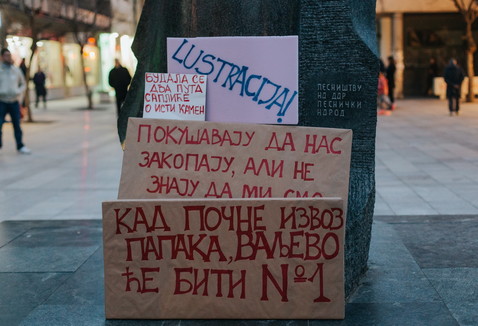 LUSTRACIJA!
БУДАЛА СЕ
ДВА ПУТА
САПЛИЋЕ
О ИСТИ КАМЕН
ПЕСНИШТВУ
НА ДАР
ПЕСНИЧКИ
НАРОД
ПОКУШАВАЈУ ДА НАС
ЗАКОПАЈУ, АЛИ НЕ
ЗНАЈУ ДА МИ СМО
КАД ПОЧНЕ ИЗВОЗ
ПАПАКА, ВАЉЕВО
ЋЕ БИТИ №1